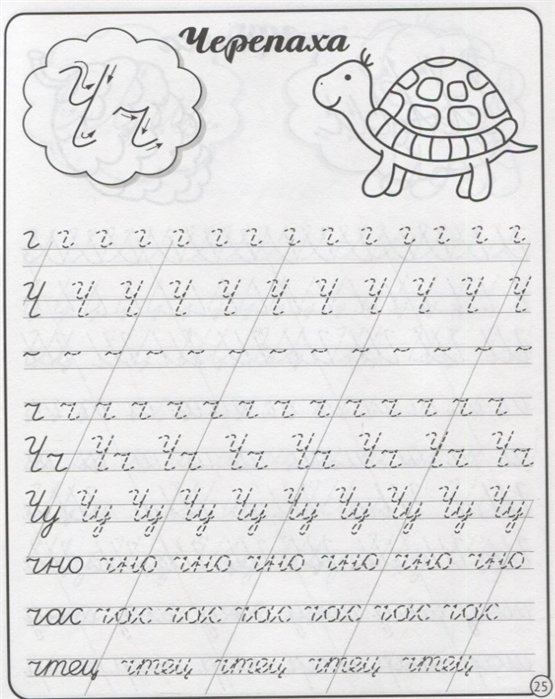 Черепаха
Ч ч
Ч Ч Ч Ч Ч Ч Ч Ч Ч Ч Ч
ч ч ч ч ч ч ч ч ч ч ч ч ч ч
Чч Чч Чч Чч Чч Чч Чч Чч
Чу Чу Чу Чу Чу Чу Чу Чу Чу Чу
чно чно чно чно чно чно чно
час час час час час час час
чтец чтец чтец чтец чтец
25